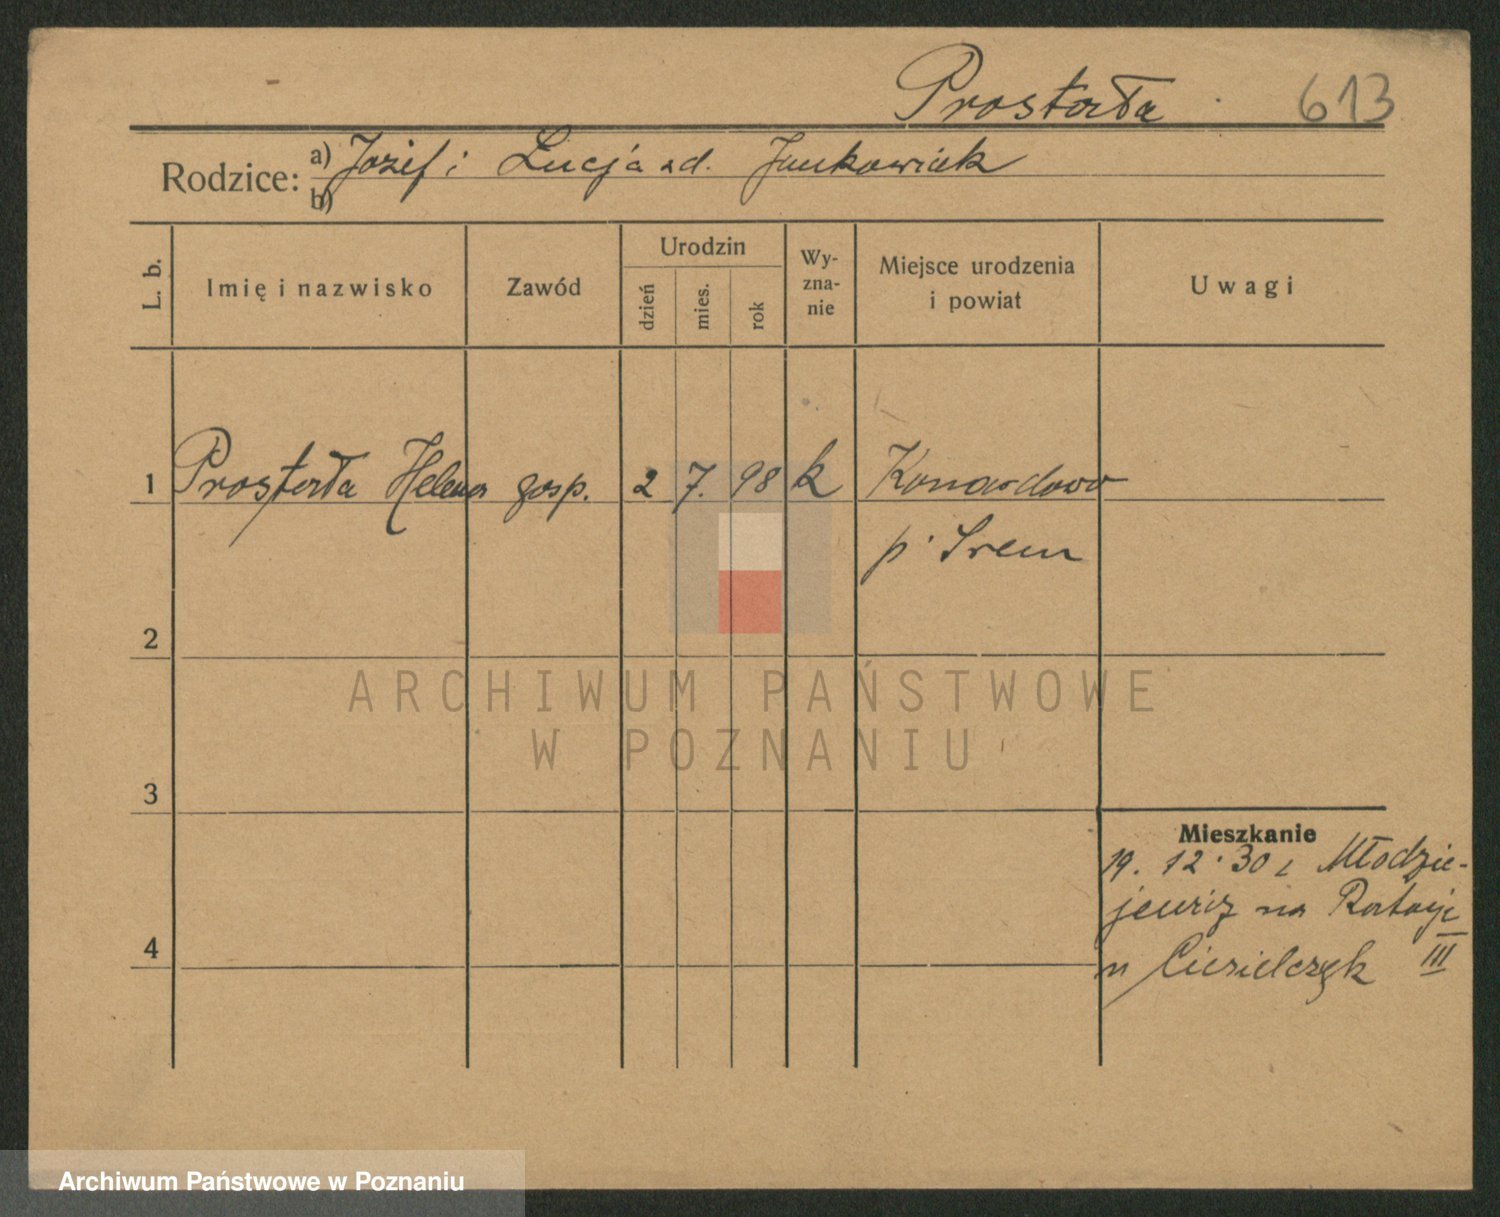 Prostała 613
Rodzice: a) Józef i Łucja zd. Jankowiak
b)
L. b. Imię i nazwisko Zawód Urodzin dzień mies. rok Wyznanie Miejsce urodzenia i powiat Uwagi
1 Prostała Helena gosp. 2 7. 98 k Konardowo
p. Srem
2
ARCHIWUM PAŃSTWOWE
W POZNANIU
3
Mieszkanie
19. 12. 30 z Młodzie-
jewic na Rataje
4 III
Archiwum Państwowe w Poznaniu